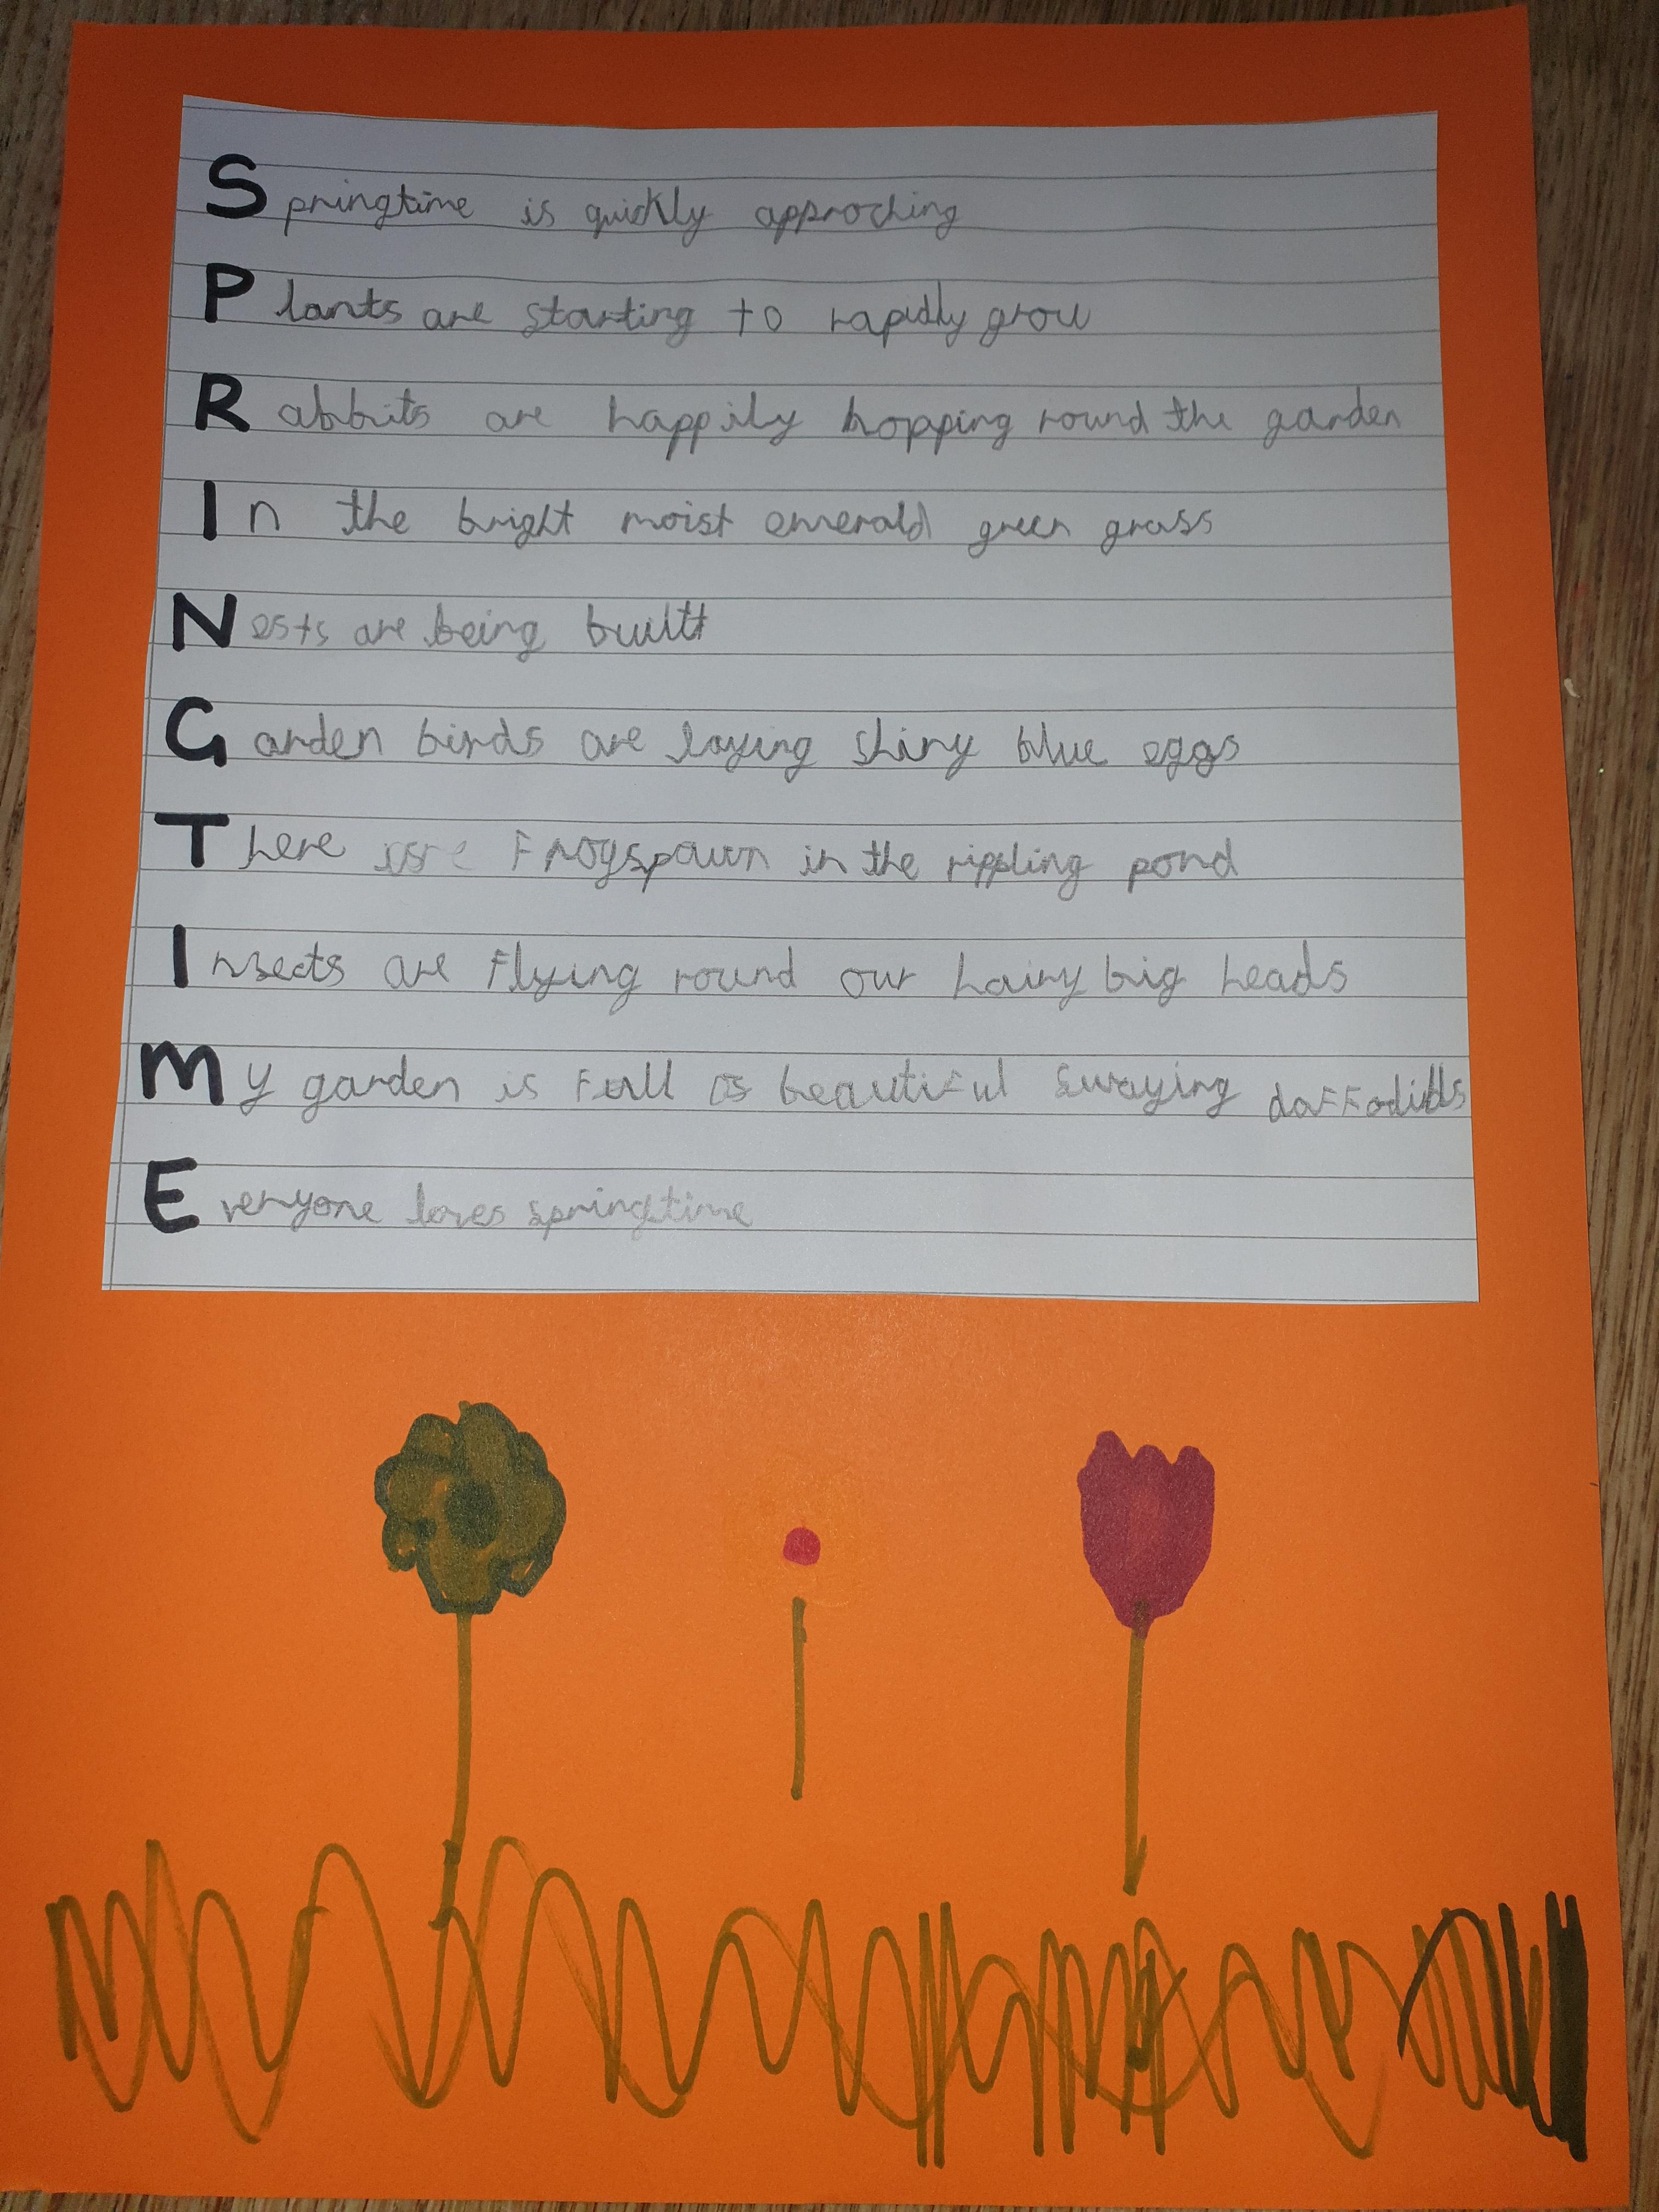 Springtime is quickly approching
Plants are starting to rapidly grow
Rabbits are happily hopping round the garden
In the bright moist emerald green grass
Nests are being built
Garden birds are laying shiny blue eggs
There Frogspawn in the rippling pond
Insects are flying round our hairy big heads
My garden is full os beautiful swaying daffodills
Everyone loves springtime